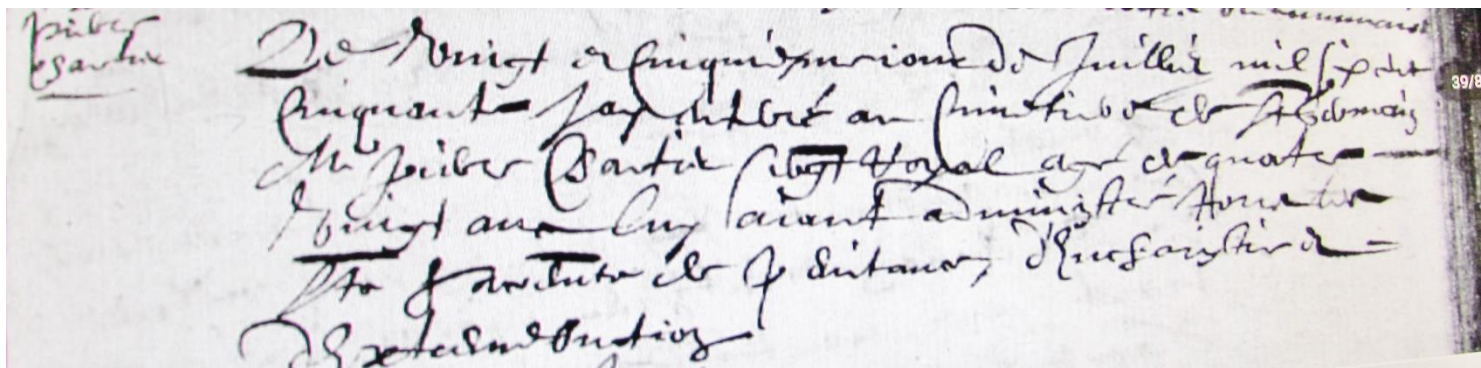 pierre
Bartie
Le vingt et cinquiesme iour de Juillet mil six cent
cinquante Jay enterré au cimetiere de St Germain
Me pierre Bartie sergt Royal agé de quatre
vingt ans luy aiant administré tous les
Sts sacremts de penitance, d'Eucharistie et
d'Extremeonction
39/8